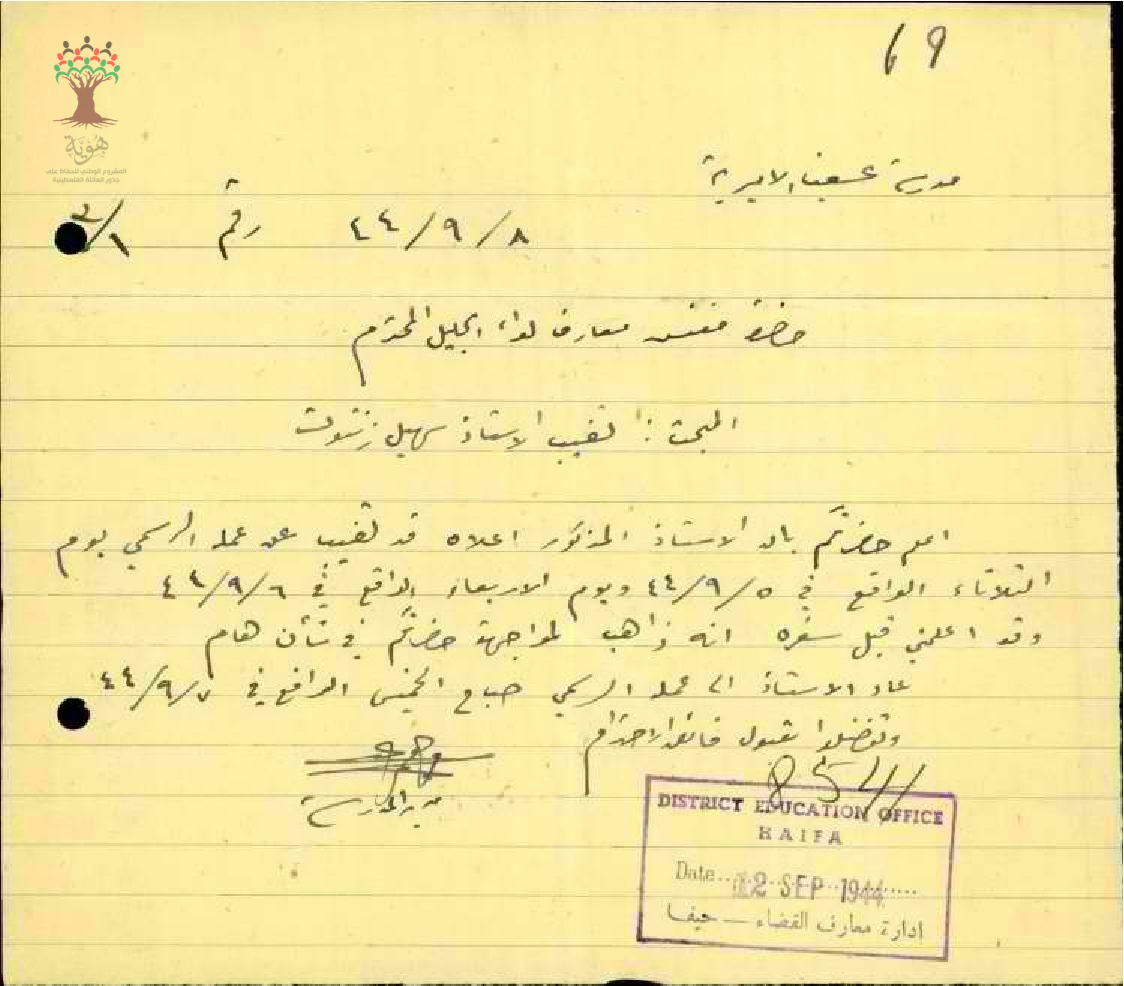 69
هوية
المشروع الوطني للحفاظ على
جذور العائلة الفلسطينية
مدرسة عسفيا الاميرية
٤٤/٩/٨ رقم
حضرة مفتش معارف لواء الجليل المحترم
المبحث : تغيب الاستاذ سهيل زنتوت
اعلم حضرتكم بان الاستاذ المذكور اعلاه قد تغيب عن عمله الرسمي يوم
الثلاثاء الواقع في ٤٤/٩/٥ ويوم الاربعاء الواقع في ٤٤/٩/٦
وقد اعلمني قبل سفره انه ذاهب لمواجهة حضرتكم في شأن هام
عاد الاستاذ الى عمله الرسمي صباح الخميس الواقع في ٤٤/٩/٧
وتفضلوا بقبول فائق الاحترام
مدير المدرسة
DISTRICT EDUCATION OFFICE
HAIFA
Date 12 SEP 1944
ادارة معارف القضاء — حيفا